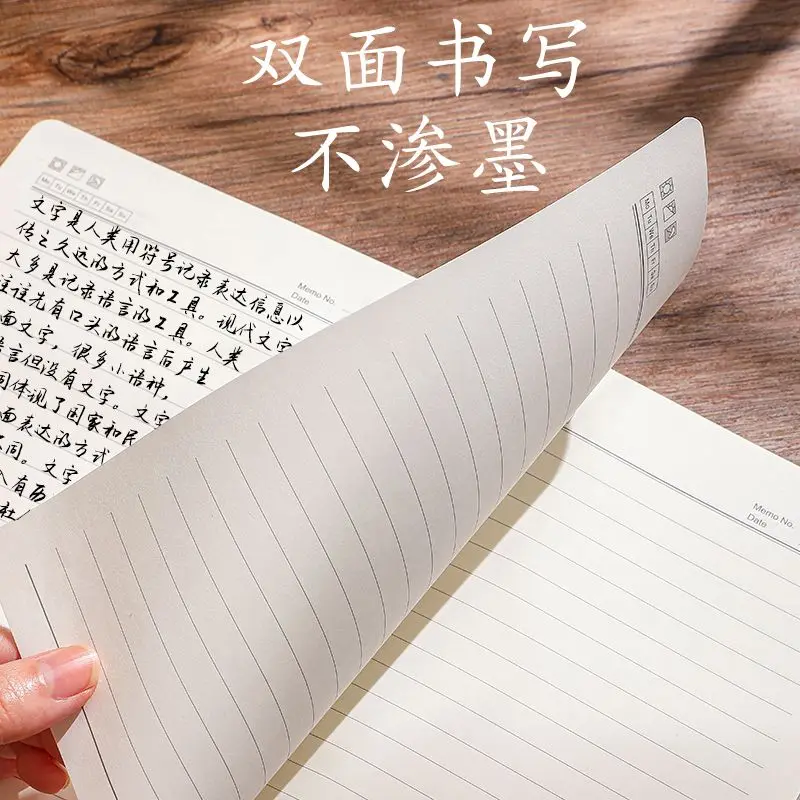 双面书写
不渗墨
Mo Tu We Th Fr Sa Su
Memo No.
Date
文字是人类用符号记录表达信息以
传之久远的方式和工具。现代文字
大多是记录语言的工具。人类
往往先有口头的语言后产生
面文字,很多小语种,
语言但没有文字。文字
同体现了国家和民
面表达的方式
不同。文字
入有历
社
Mo Tu We Th Fr Sa Su
Memo No.
Date